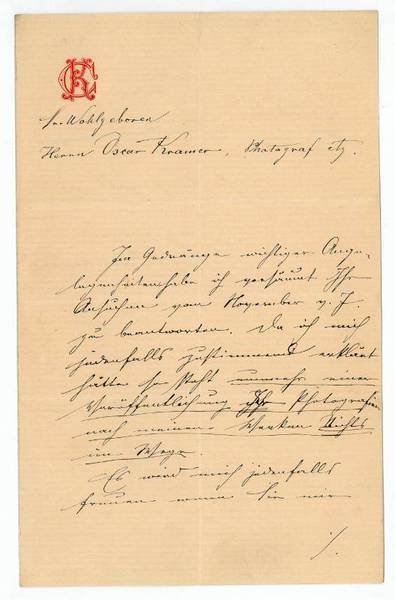 Sr Wohlgeboren
Herrn Oscar Kramer, Photograf etz.
Im Gedränge wichtiger Ange-
legenheiten habe ich versäumt Ihr
Ansuchen vom November v. J.
zu beantworten. Da ich mich
jedenfalls zustimmend erklärt
hätte so steht nunmehr einer
Veröffentlichung Photografien
nach meinen Werken Nichts
im Wege.
Es wird mich jedenfalls
freuen wenn Sie mir
./.